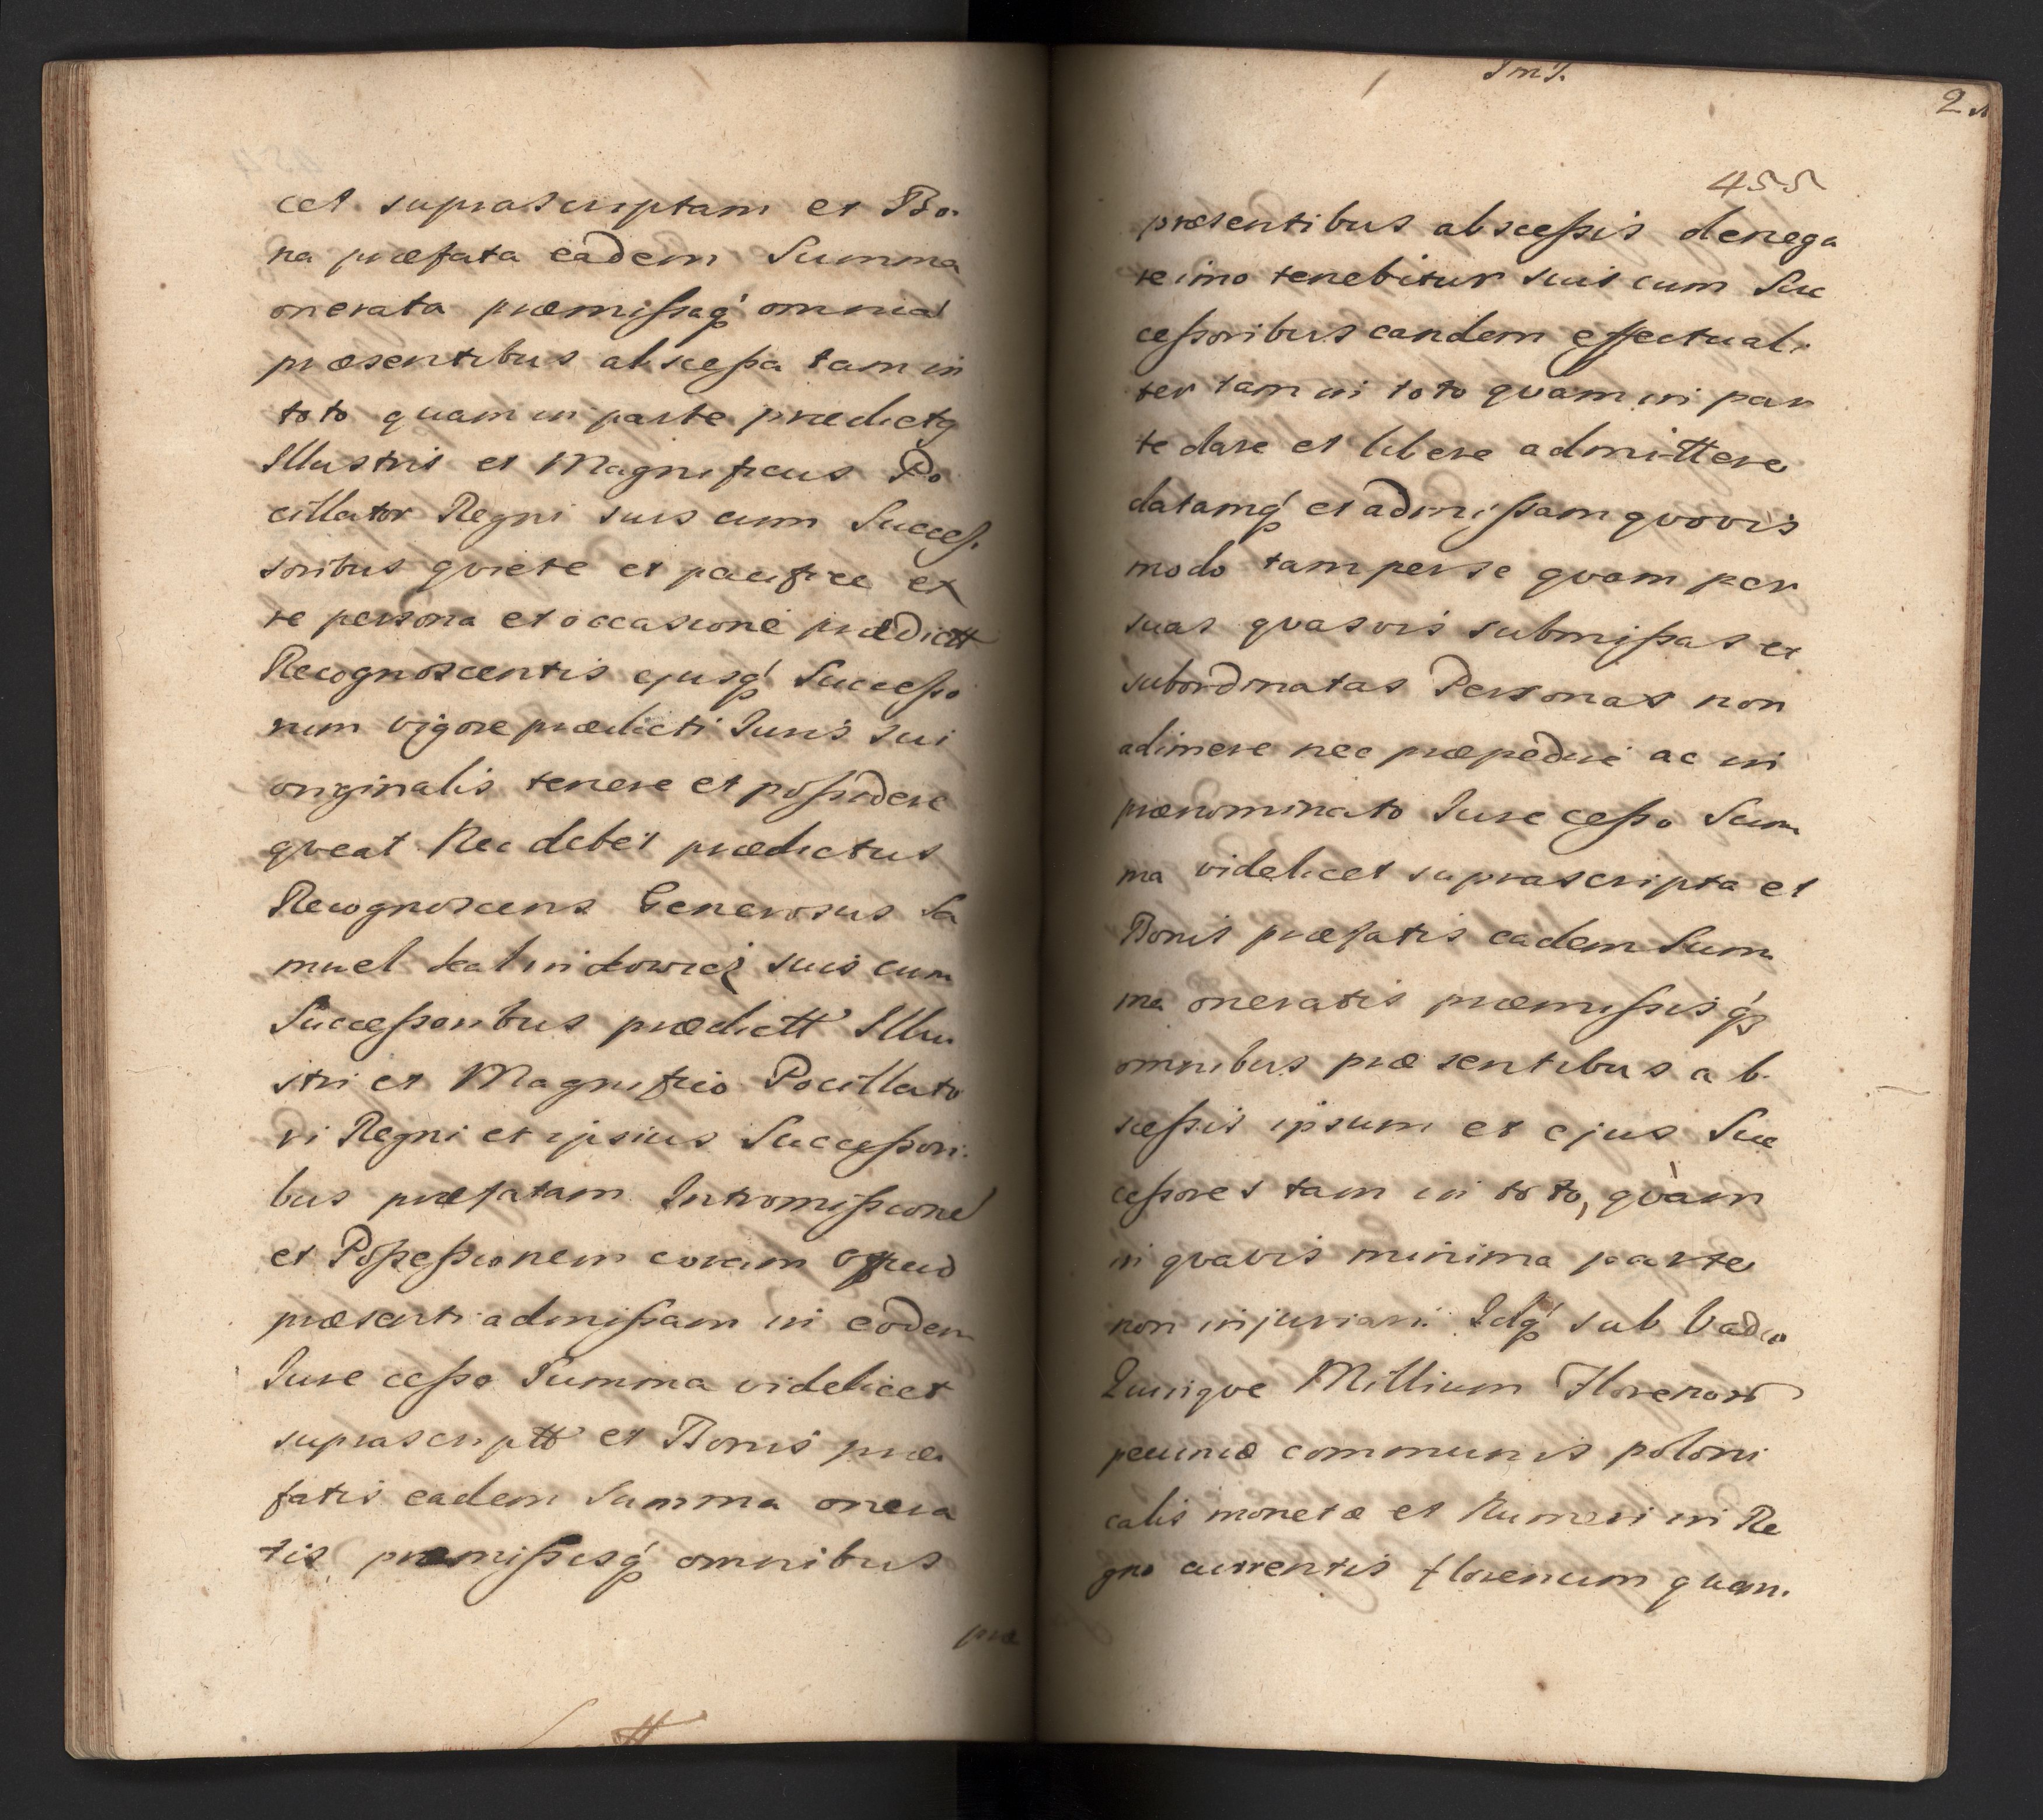 cet suprascriptam et Bo-
na præfata eadem Summa
onerata præmissaq́ omnia
præsentibus abscessa tam in
toto quam in parte prædictq
Illustris et Magnificus Po
cillator Regni suis cum Succes-
soribus qviete et pacifice ex
re persona et occasione prædictt
Recognoscentis ejusq́ Successo
rum vigore prædicti Juris sui
originalis tenere et possidere
qveat Nec debet prædictus
Recognoscens Generosus Sa
muel suis cum
Successoribus prædictt Illu
stri et Magnifico Pocillato
ri Regni et ipsius Successori-
bus præfatam Intromissione
et Possessionem coram
præsenti admissam in eodem
Jure cesso Summa videlicet
suprascriptt et Bonis præ-
fatis eadem Summa onera
tis præmissisq́ omnibus
præ
2
455
præsentibus abscessis denega
re imo tenebitur suis cum Suc
cessoribus eandem effectuali
ter tam in toto quam in par
te dare et libere admittere
datamq́ et admissam qvovis
modo tam per se qvam per
suas qvasvis submissas et
subordinatas Personas non
adimere nec præpedire ac in
prænominato Jure cesso Sum
ma videlicet suprascripta et
Bonis præfatis eadem Sum
ma oneratis præmissisq́
omnibus præsentibus ab-
scessis ipsum et ejus Suc
cessores tam in toto, qvàm
in qvavis minima parte
non injuriari. Idq́ sub Vadio
Qvinqve Millium Florenor
pecuniæ communis poloni
calis monetæ et Numeri in Re
gno currentis florenum quem-